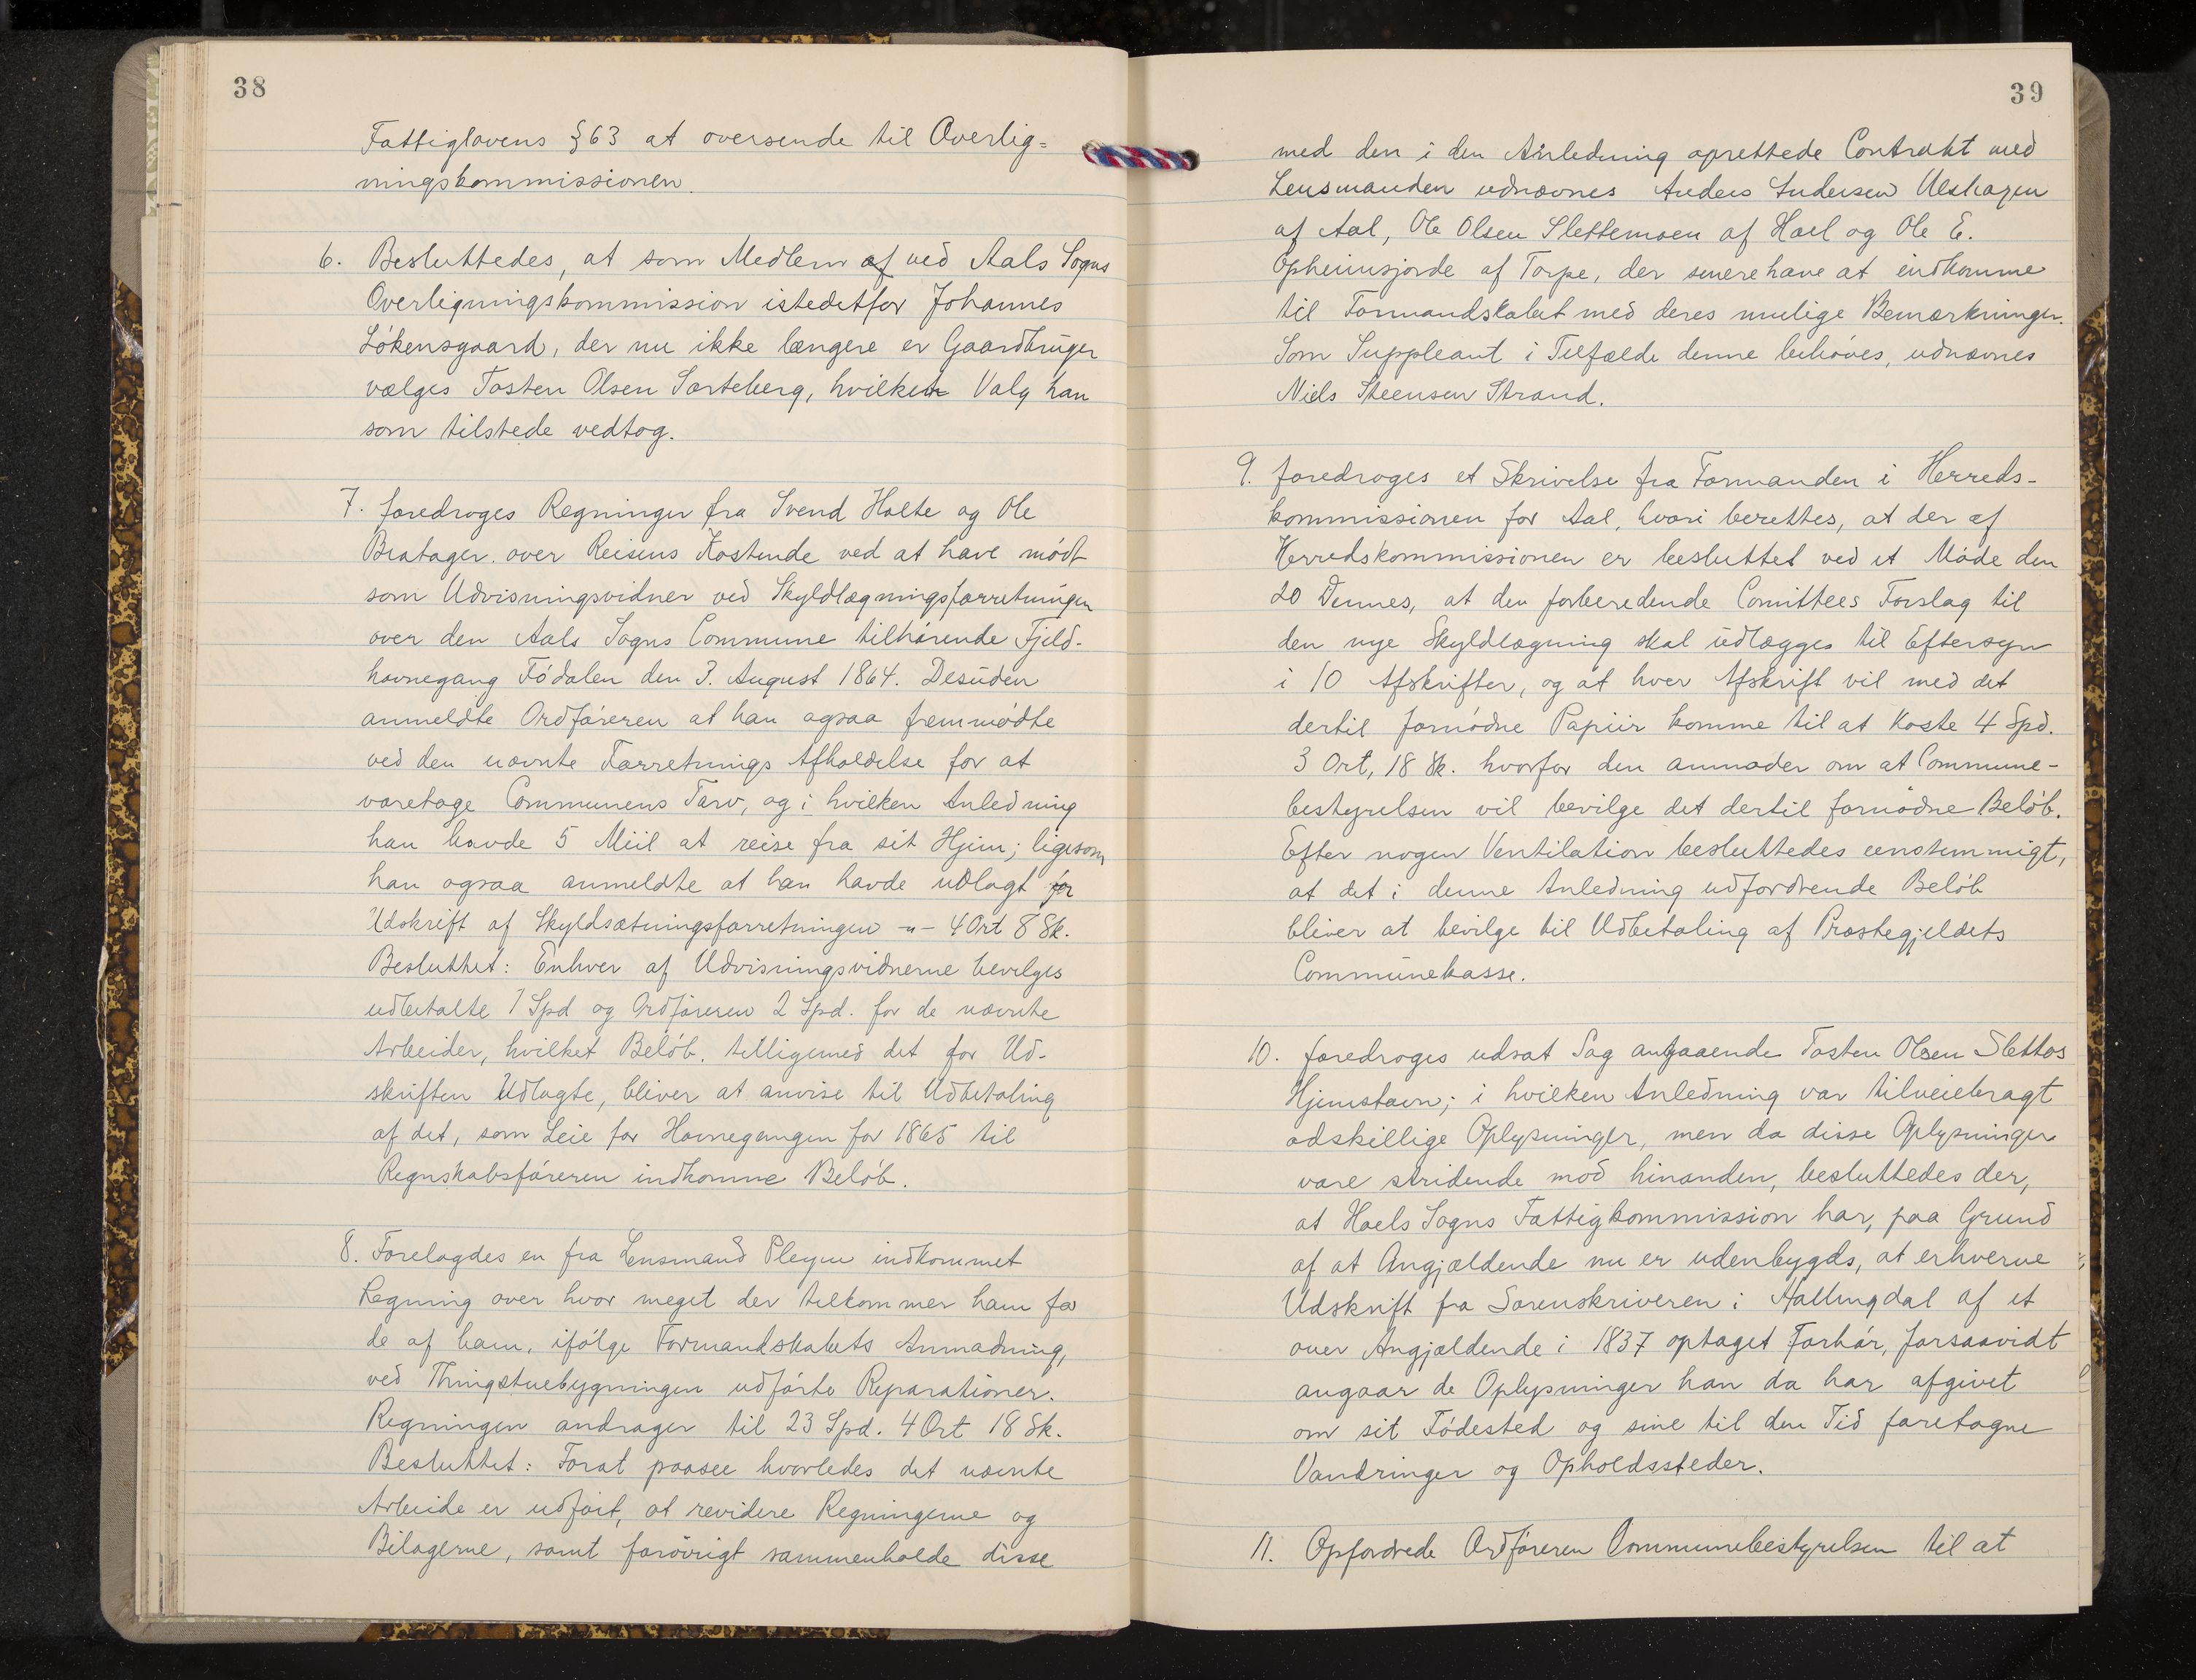 38
Fattiglovens §63 at oversende til Overlig=
ningskommissionen.
6. Besluttedes, at som Medlem af ved Aals Sogns
Overligningskommission istedetfor Johannes
Lökensgaard, der nu ikke længere er Gaardbruger
vælges Tosten Olsen Sorteberg, hvilket Valg han
som tilstede vedtog.
7. foredroges Regninger fra Svend Holte og Ole
Bratager. over Reisens Kostende ved at have mödt
som Udvisningsvidner ved Skyldlægningsforretningen
over den Aals Sogns Commune tilhörende Fjeld-
havnegang Födalen den 3. August 1864. Desuden
anmeldte Ordföreren at han ogsaa fremmödte
ved den nævnte Forretnings Afholdelse for at
varetage Communens Tarv, og i hvilken Anledning
han havde 5 Miil at reise fra sit Hjem; ligesom
han ogsaa anmeldte at han havde udlagt for
Udskrift af Skyldsætningsforretningen -„- 4 Ort 8 Sk.
Besluttet: Enhver af Udvisningsvidnerne bevilges
udbetalte 1 Spd og Ordföreren 2 Spd. for de nævnte
Arbeider, hvilket Belöb. tilligemed det for Ud-
skriften Udlagte, bliver at anvise til Udbetaling
af det, som Leie for Havnegangen for 1865 til
Regnskabsföreren indkomne Belöb.
8. Forelagdes en fra Lensmand Pleym indkommet
Regning over hvor meget der tilkommer ham for
de af ham, ifölge Formandskabets Anmodning,
ved Thingstuebygningen udförte Reparationer.
Regningen andrager til 23 Spd. 4 Ort 18 Sk.
Besluttet: Forat paasee hvorledes det nævnte
Arbeide er udfört, at revidere Regningerne og
Bilagerne, samt forövrigt sammenholde disse
39
med den i den Anledning oprettede Contrakt med
Lensmanden udnævnes Anders Andersen Ulshagen
af Aal, Ole Olsen Slettemoen af Hoel og Ole E.
Opheimsjorde af Torpe, der senere have at indkomme
til Formandskabet med deres mulige Bemærkninger.
Som Suppleant i Tilfælde denne behöves, udnævnes
Niels Steensen Strand.
9. foredroges et Skrivelse fra Formanden i Herreds-
kommissionen for Aal, hvori berettes, at der af
Herredskommissionen er besluttet ved et Möde den
20 Dennes, at den forberedende Comittees Forslag til
den nye Skyldlægning skal udlægges til Eftersyn
i 10 Afskrifter, og at hver Afskrift vil med det
dertil fornödne Papiir komme til at koste 4 Spd.
3 Ort, 18 Sk. hvorfor den anmoder om at Commune-
bestyrelsen vil bevilge det dertil fornödne Belöb.
Efter nogen Ventilation besluttedes eenstemmigt,
at det i denne Anledning udfordrende Belöb
bliver at bevilge til Udbetaling af Præstegjeldets
Communekasse.
10. foredroges udsat Sag angaaende Tosten Olsen Slettos
Hjemstavn; i hvilken Anledning var tilveiebragt
adskillige Oplysninger, men da disse Oplysninger
vare stridende mod hinanden, besluttedes der,
at Hoels Sogns Fattigkommission har, paa Grund
af at Angjældende nu er udenbygds, at erhverve
Udskrift fra Sorenskriveren i Hallingdal af et
over Angjældende i 1837 optaget Forhör, forsaavidt
angaar de Oplysninger han da har afgivet
om sit Födested og sine til den Tid foretagne
Vandringer og Opholdssteder.
11. Opfordrede Ordföreren Communebestyrelsen til at